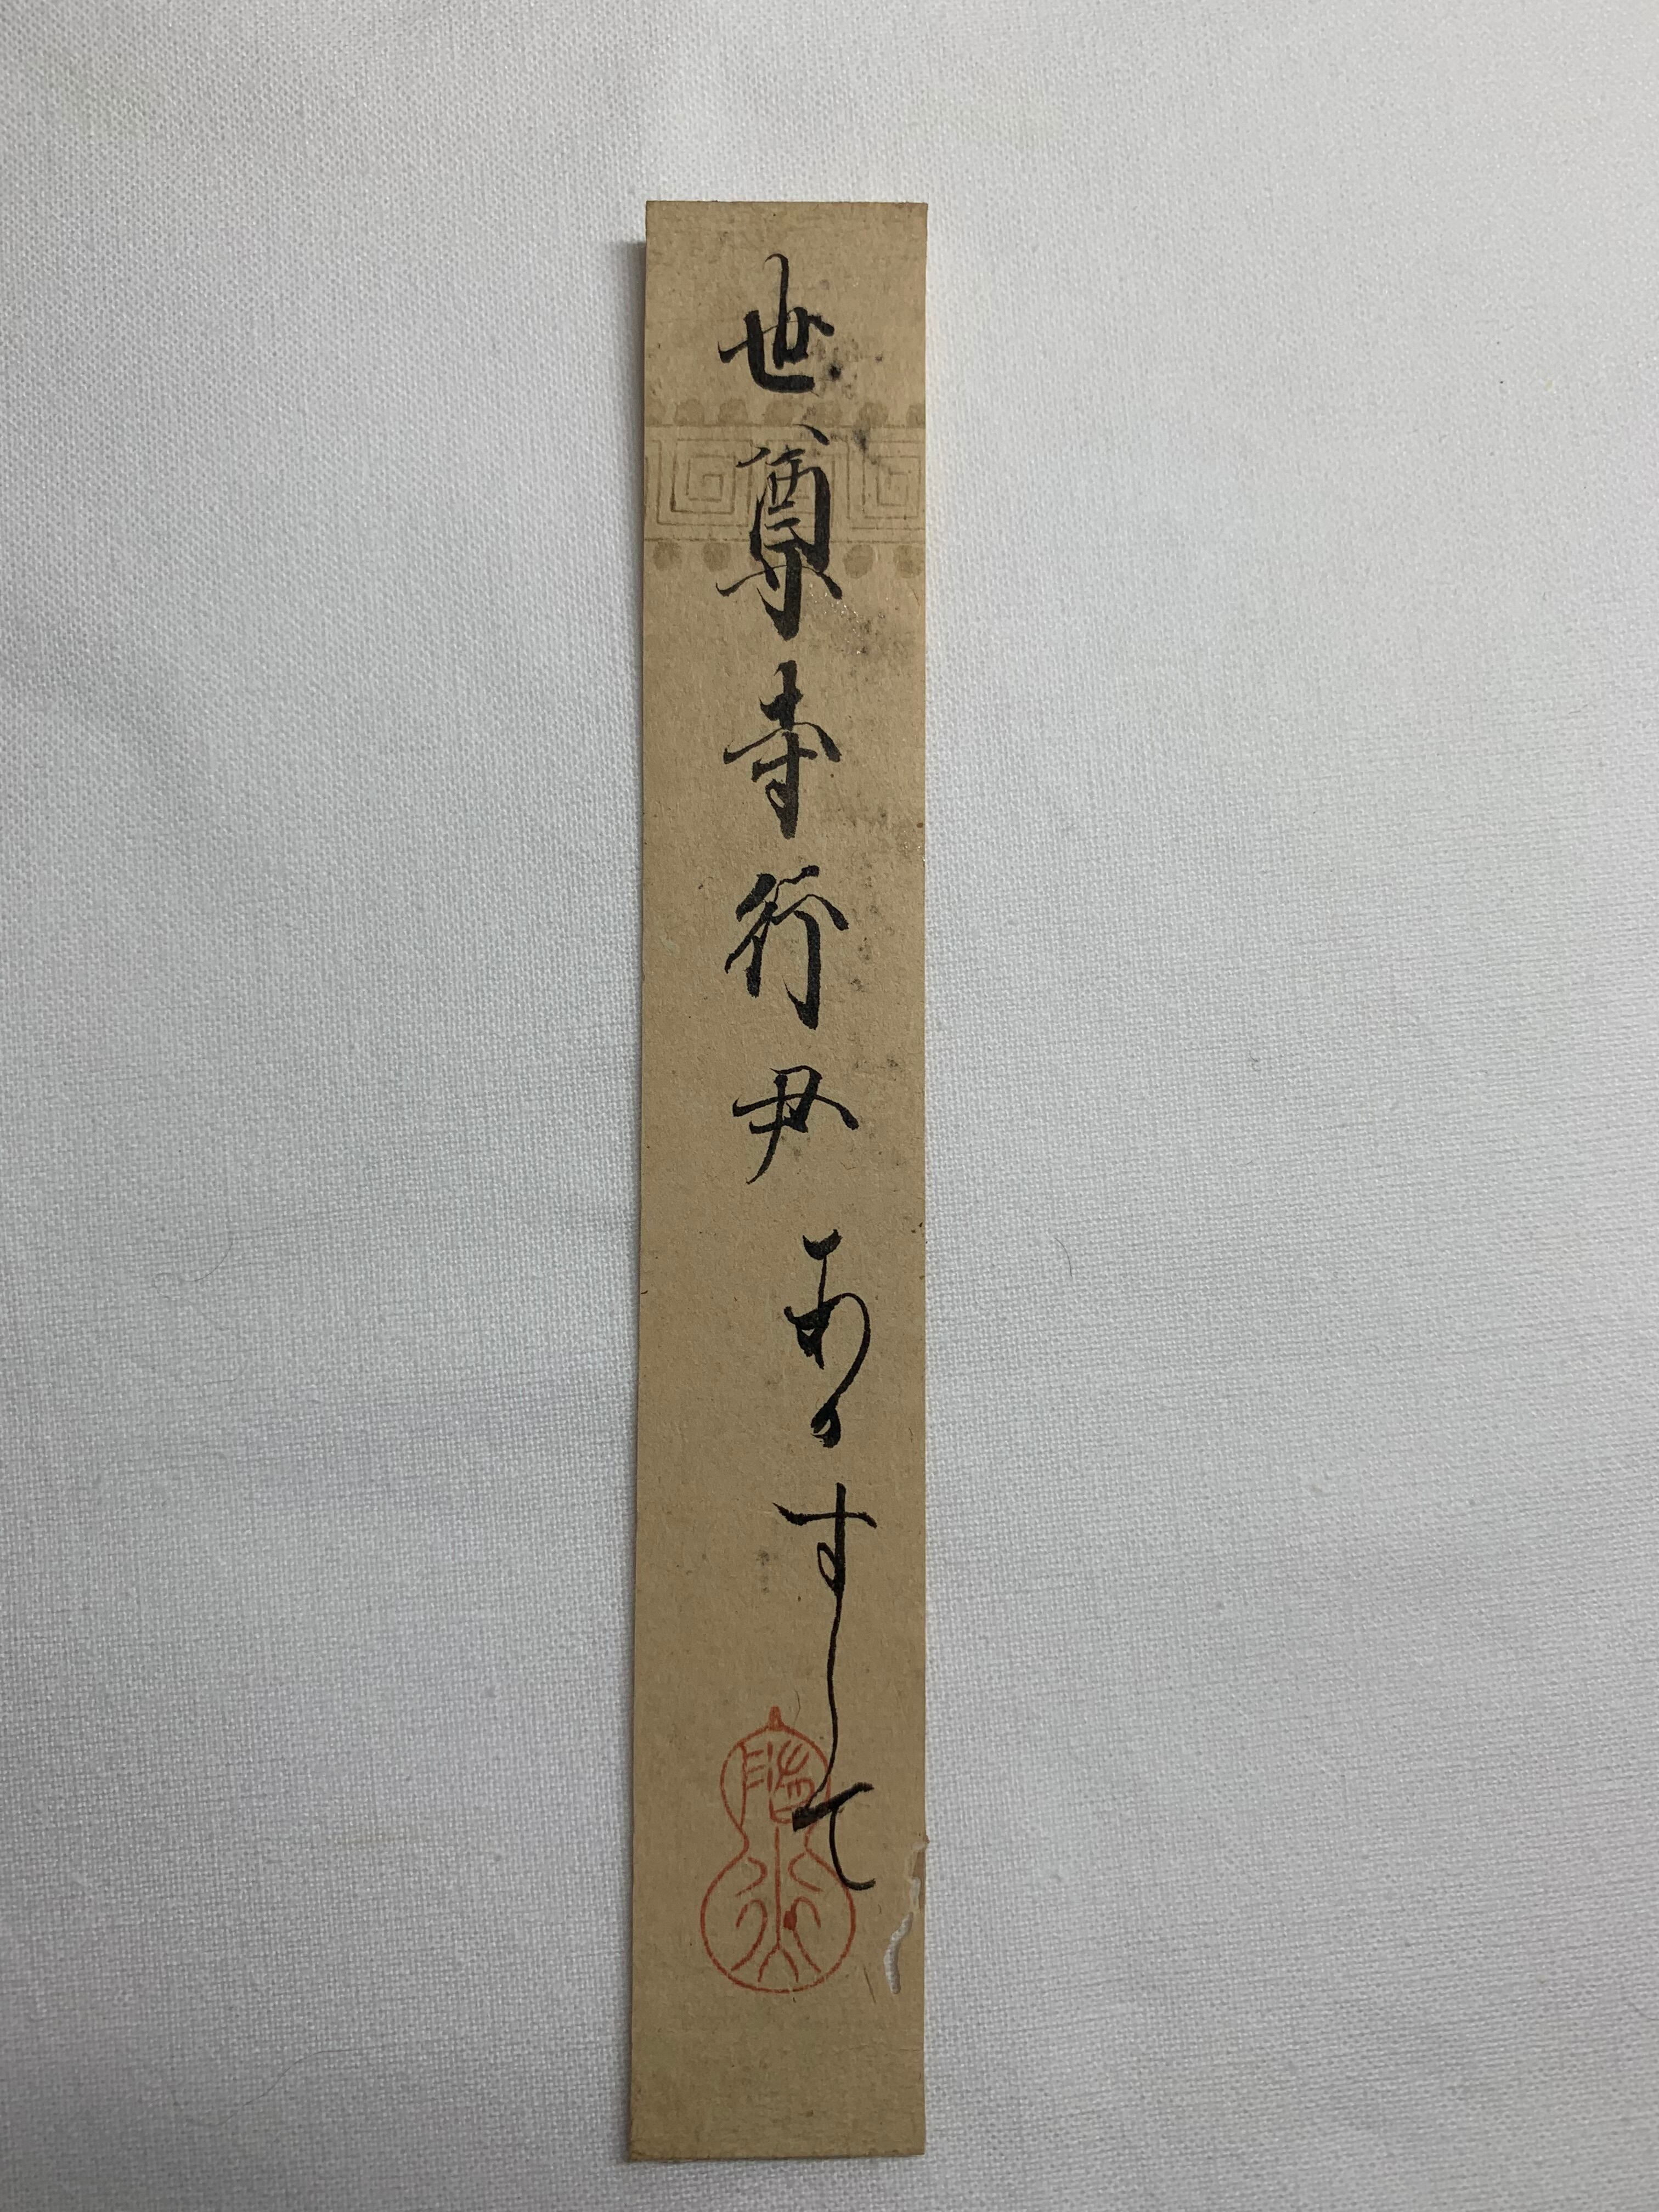 世尊寺行尹 あかすして